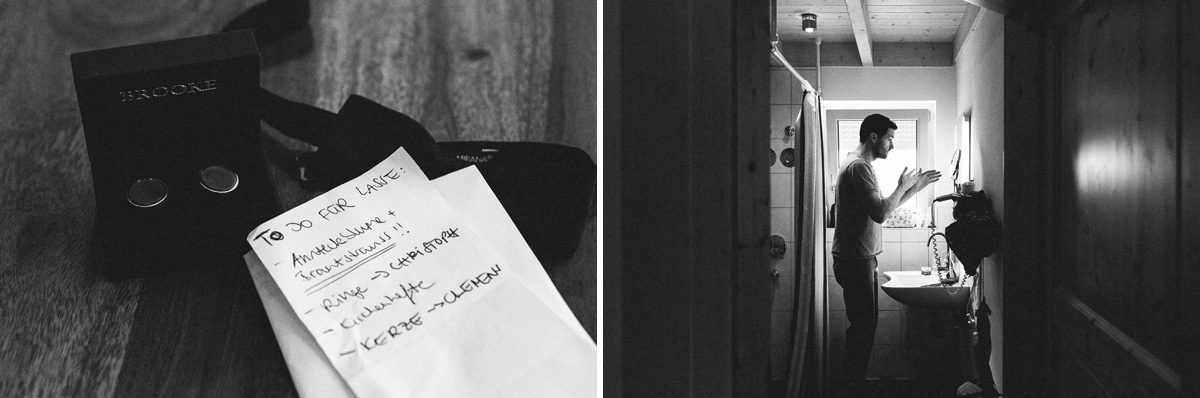 BROOKE
TO DO FÜR LASSE:
- Ansteckblume +
Brautstrauss!!
- Ringe → CHRISTOPH
- Kirchenhefte
- KERZE → CLEMENS